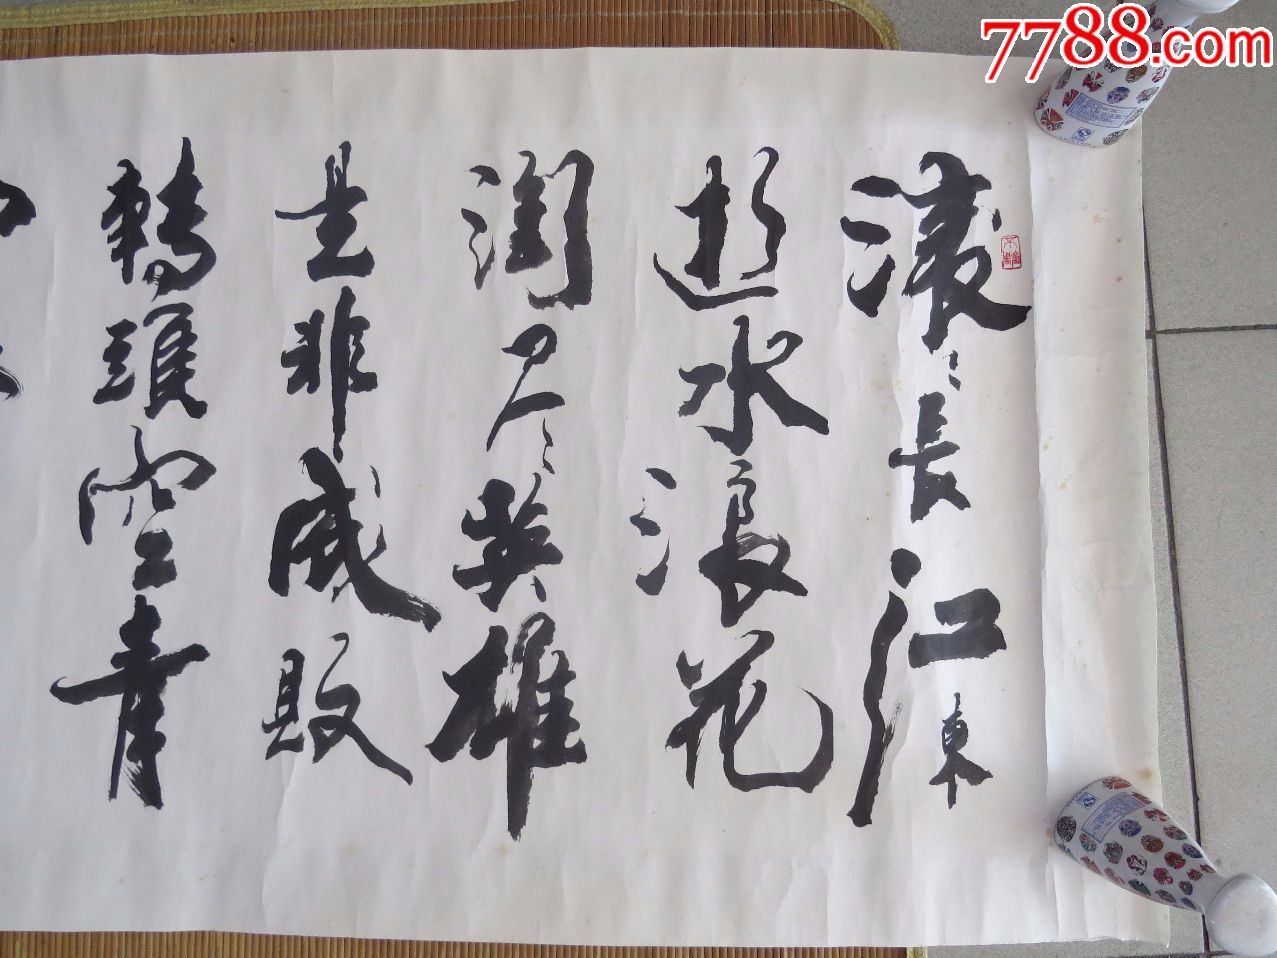 7788.com
滚〻長江東
逝水浪花
淘尽英雄
是非成敗
轉頭空青